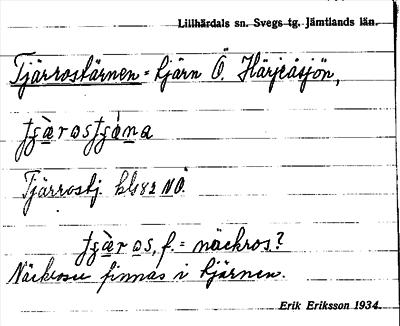 Lillhärdals sn. Svegs tg. Jämtlands län.
Tjärrostärnen = tjärn Ö. Härjeåsjön,
Tjärrostj. bl 82 NÖ.
f. = näckros?
Näckrosor finnas i tjärnen.
Erik Eriksson 1934.